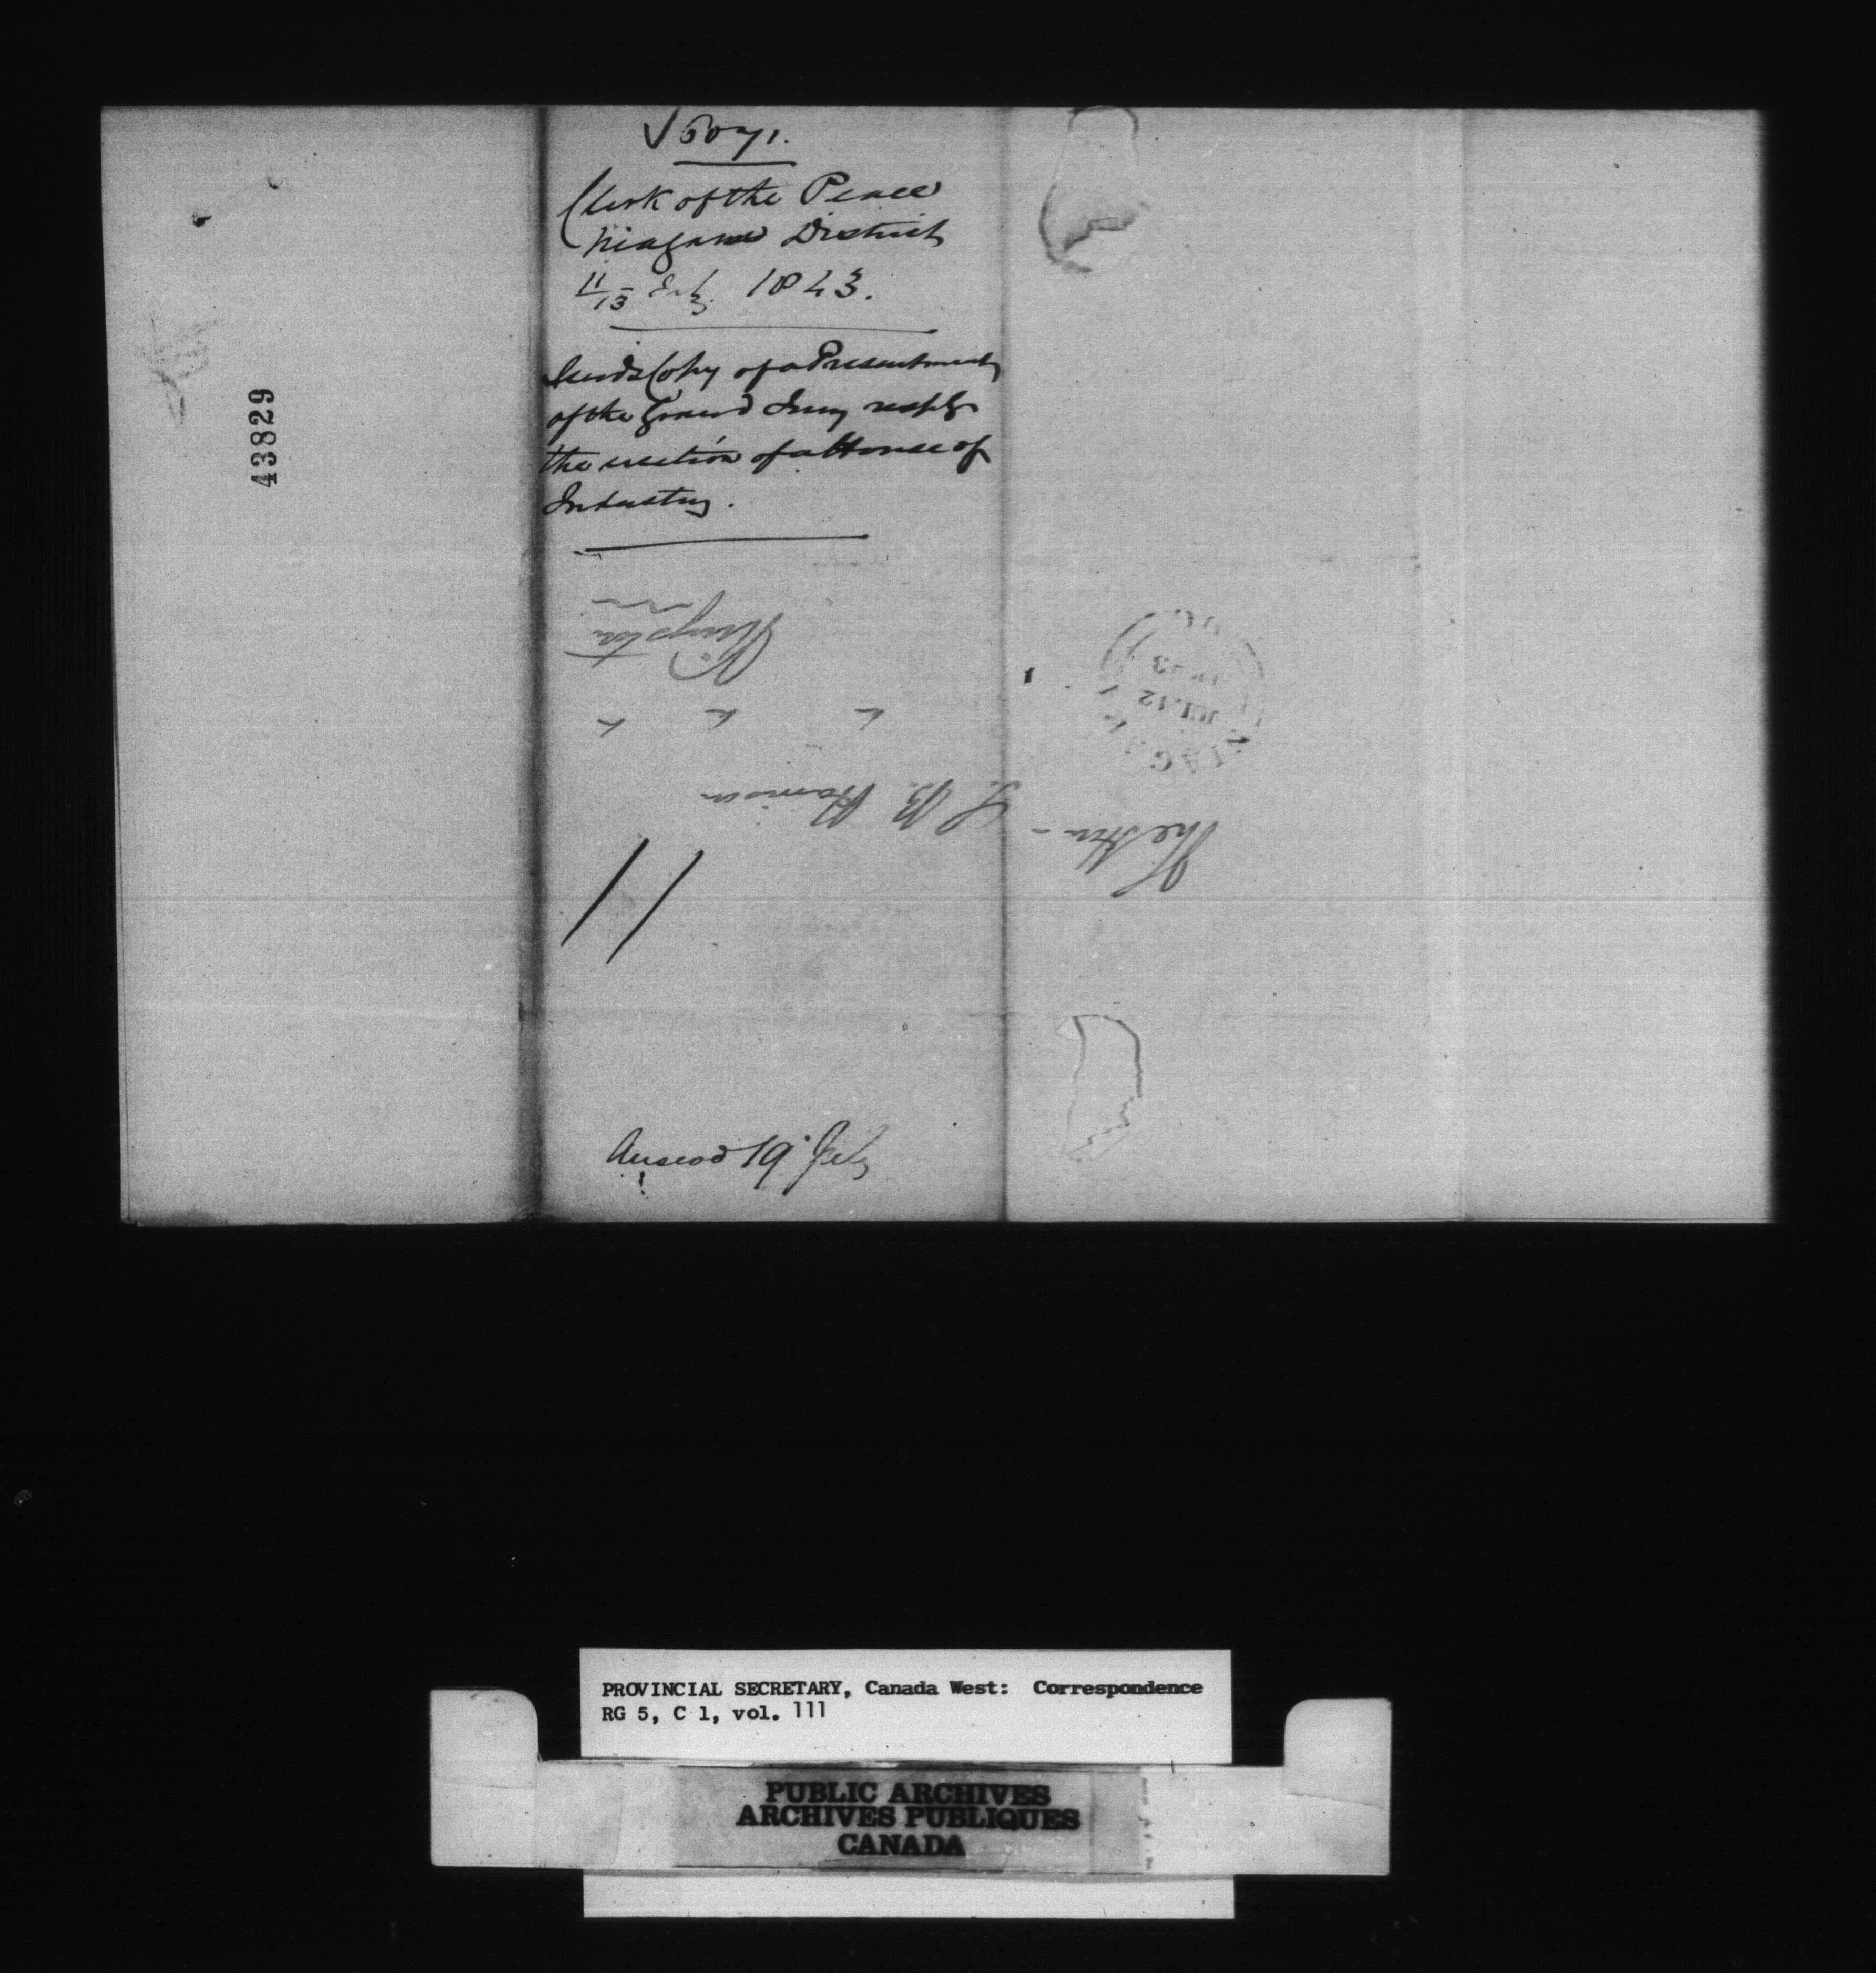 6071.
Clerk of the Peace
Niagara District
11/13 July 1843.
Sends Copy of a Presentment
of the Grand Jury respg
the erection of a House of
Industry.
Kingston
The Hon
S. B. Harrison
JUL 12
Answd 19 July
43829
PROVINCIAL SECRETARY, Canada West: Correspondence
RG 5, C 1, vol. 111
PUBLIC ARCHIVES
ARCHIVES PUBLIQUES
CANADA